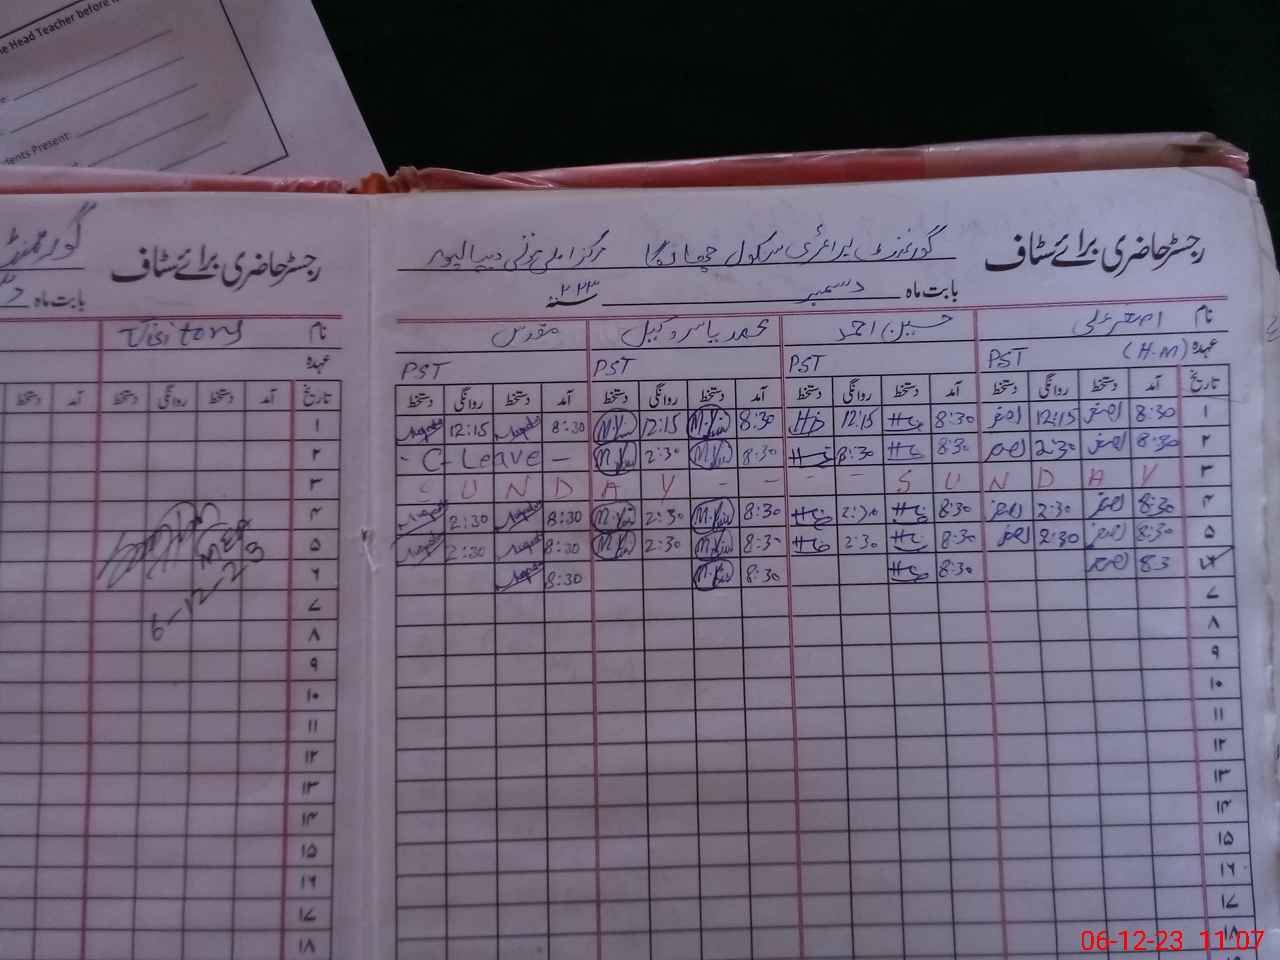 he Head Teacher before
dents Present:
رجسٹر حاضری برائے سٹاف
گورنمنٹ
بابت ماہ
نام Visitors
عہدہ
تاریخ آمد دستخط روانگی دستخط آمد دستخط
۱
۲
۳
۴
۵
۶
۷
۸
۹
۱۰
۱۱
۱۲
۱۳
۱۴
۱۵
۱۶
۱۷
۱۸
MEA
6-12-23
رجسٹر حاضری برائے سٹاف گورنمنٹ پرائمری سکول مرکز دیپالپور
بابت ماہ دسمبر ۲۰۲۳
نام اصغر علی حسین احمد محمد یاسر وکیل مقدس
عہدہ (H.M) PST PST PST PST
تاریخ آمد دستخط روانگی دستخط آمد دستخط روانگی دستخط آمد دستخط روانگی دستخط آمد دستخط روانگی دستخط
۱ 8:30 اصغر 12:15 اصغر 8:30 12:15 8:30 M.Yasir 12:15 M.Yasir 8:30 Muqadas 12:15 Muqadas
۲ 8:30 اصغر 2:30 اصغر 8:30 8:30 8:30 M.Yasir 2:30 M.Yasir - C-Leave -
۳ S U N D A Y - - - - S U N D A Y
۴ 8:30 اصغر 2:30 اصغر 8:30 2:30 8:30 M.Yasir 2:30 M.Yasir 8:30 Muqadas 2:30 Muqadas
۵ 8:30 اصغر 2:30 اصغر 8:30 2:30 8:30 M.Yasir 2:30 M.Yasir 8:30 Muqadas 2:30 Muqadas
۶ 8:3 اصغر 8:30 8:30 M.Yasir 8:30 Muqadas
۷
۸
۹
۱۰
۱۱
۱۲
۱۳
۱۴
۱۵
۱۶
۱۷
۱۸
06-12-23 11:07